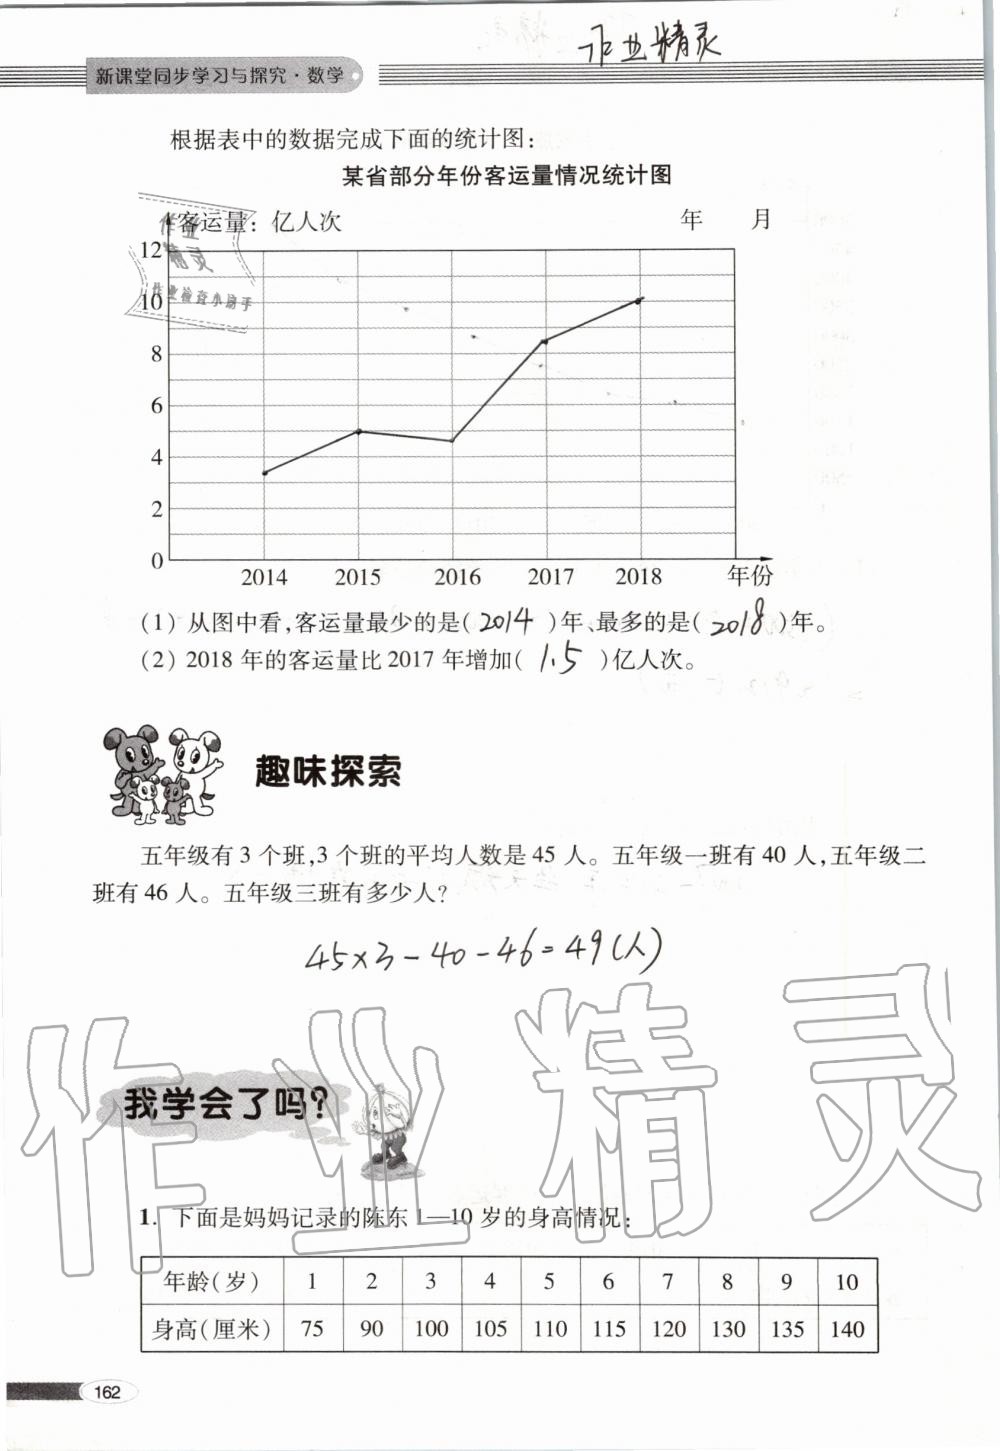 作业精灵
新课堂同步学习与探究·数学
根据表中的数据完成下面的统计图:
某省部分年份客运量情况统计图
客运量: 亿人次 年 月
作业
精灵
作业检查小助手
12
10
8
6
4
2
0
2014 2015 2016 2017 2018 年份
(1) 从图中看,客运量最少的是( 2014 )年,最多的是( 2018 )年。
(2) 2018 年的客运量比 2017 年增加( 1.5 )亿人次。
趣味探索
五年级有 3 个班,3 个班的平均人数是 45 人。五年级一班有 40 人,五年级二
班有 46 人。五年级三班有多少人?
45×3-40-46=49(人)
作业精灵
我学会了吗?
1. 下面是妈妈记录的陈东 1—10 岁的身高情况:
年龄(岁) 1 2 3 4 5 6 7 8 9 10
身高(厘米) 75 90 100 105 110 115 120 130 135 140
162